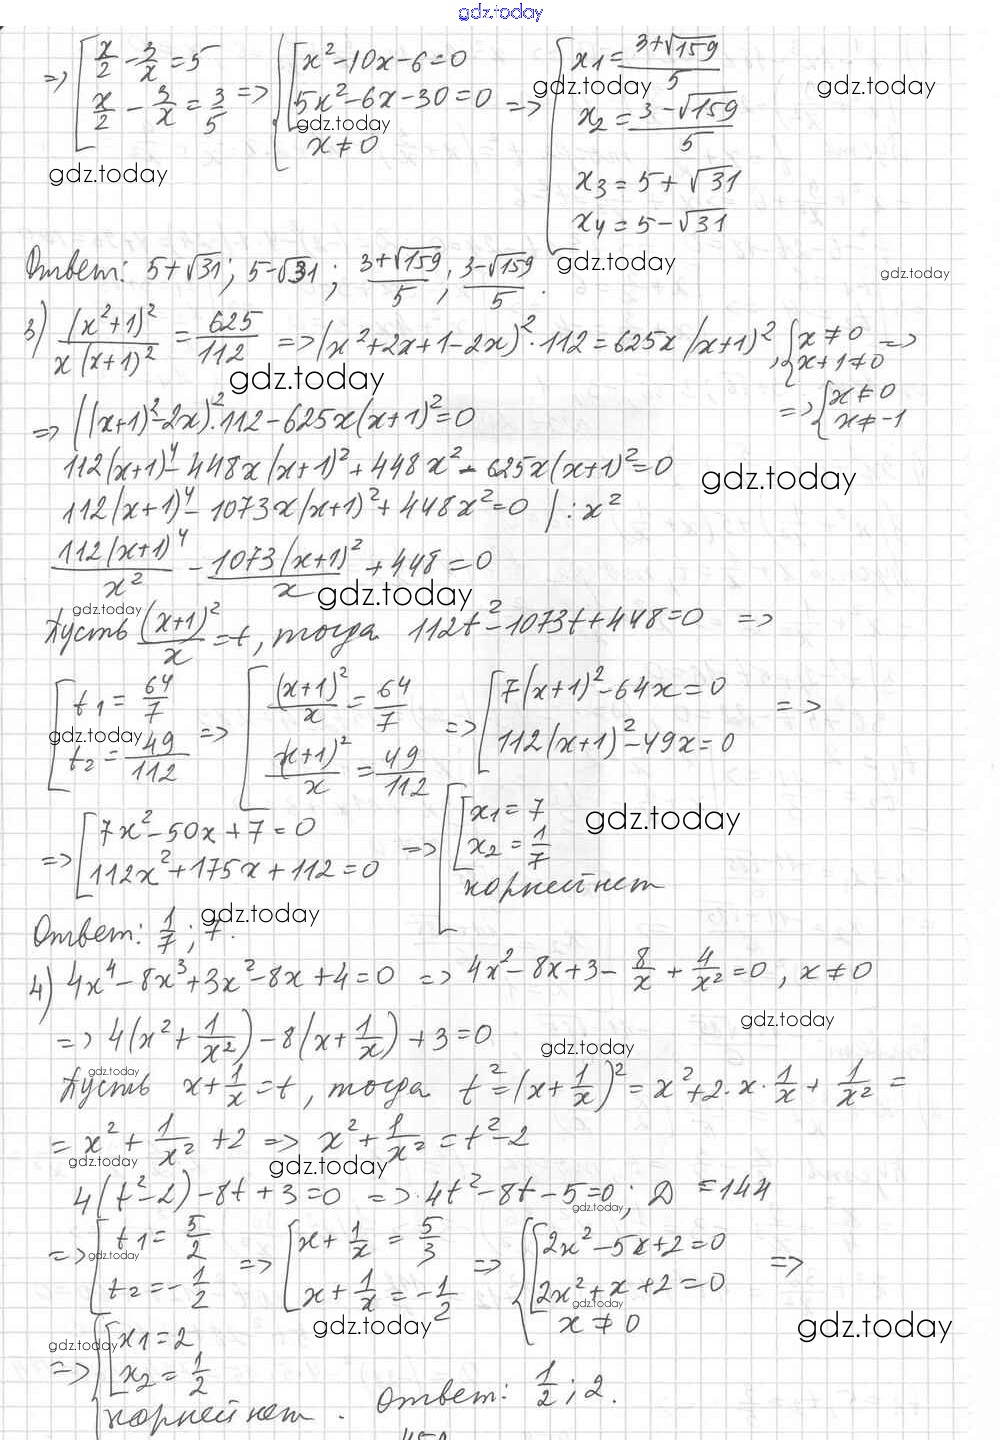 gdz.today
=> [ x/2 - 3/x = 5 ; x/2 - 3/x = 3/5 => { [ x² - 10x - 6 = 0 ; 5x² - 6x - 30 = 0 ; x ≠ 0 => [ x1 = (3+√159)/5 ; x2 = (3-√159)/5 ; x3 = 5+√31 ; x4 = 5-√31
gdz.today gdz.today
gdz.today
gdz.today
Ответ: 5+√31; 5-√31; (3+√159)/5, (3-√159)/5.
gdz.today gdz.today
3) (x²+1)²/(x(x+1)²) = 625/112 => (x²+2x+1-2x)²·112 = 625x(x+1)², { x ≠ 0 ; x+1 ≠ 0 =>
gdz.today
=> { x ≠ 0 ; x ≠ -1
=> ((x+1)²-2x)²·112 - 625x(x+1)² = 0
112(x+1)⁴ - 448x(x+1)² + 448x² - 625x(x+1)² = 0
gdz.today
112(x+1)⁴ - 1073x(x+1)² + 448x² = 0 | : x²
112(x+1)⁴/x² - 1073(x+1)²/x + 448 = 0
gdz.today
gdz.today
Пусть (x+1)²/x = t, тогда 112t² - 1073t + 448 = 0 =>
[ t1 = 64/7 ; t2 = 49/112 => [ (x+1)²/x = 64/7 ; (x+1)²/x = 49/112 => [ 7(x+1)² - 64x = 0 ; 112(x+1)² - 49x = 0 =>
gdz.today
=> [ 7x² - 50x + 7 = 0 ; 112x² + 175x + 112 = 0 => [ [ x1 = 7 ; x2 = 1/7 ; корней нет
gdz.today
gdz.today
Ответ: 1/7; 7.
4) 4x⁴ - 8x³ + 3x² - 8x + 4 = 0 => 4x² - 8x + 3 - 8/x + 4/x² = 0, x ≠ 0
gdz.today
=> 4(x² + 1/x²) - 8(x + 1/x) + 3 = 0
gdz.today
gdz.today
Пусть x + 1/x = t, тогда t² = (x + 1/x)² = x² + 2·x·1/x + 1/x² =
= x² + 1/x² + 2 => x² + 1/x² = t² - 2
gdz.today gdz.today
4(t² - 2) - 8t + 3 = 0 => 4t² - 8t - 5 = 0; D = 144
gdz.today
=> [ t1 = 5/2 ; t2 = -1/2 => [ x + 1/x = 5/3 ; x + 1/x = -1/2 => { [ 2x² - 5x + 2 = 0 ; 2x² + x + 2 = 0 ; x ≠ 0 =>
gdz.today
gdz.today
gdz.today gdz.today
gdz.today
=> { [ x1 = 2 ; x2 = 1/2 ; корней нет. Ответ: 1/2; 2.